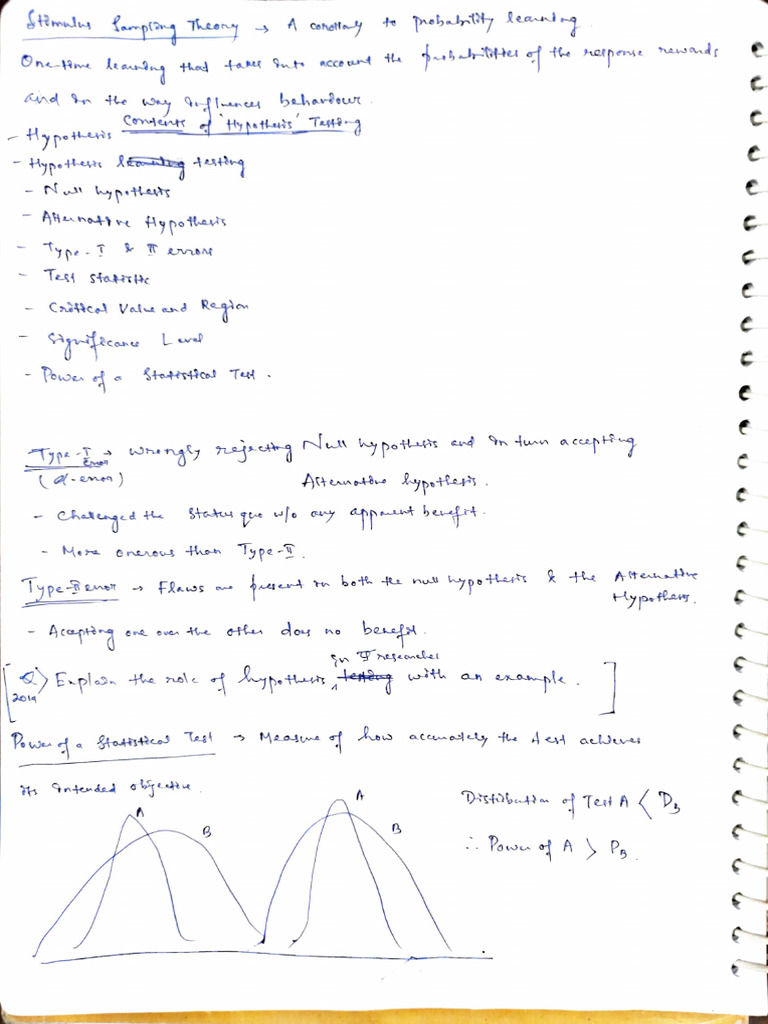 Stimulus Sampling Theory → A corollary to probability learning.
One-time learning that takes into account the probabilities of the response rewards
and in the way influences behaviour.
Contents of 'Hypothesis' Testing
- Hypothesis
- Hypothesis testing
- Null hypothesis
- Alternative Hypothesis
- Type-I & II errors
- Test statistic
- Critical Value and Region
- Significance Level
- Power of a Statistical Test.
Type-I error → wrongly rejecting Null hypothesis and in turn accepting
(α-error) Alternative hypothesis.
- Challenged the status quo w/o any apparent benefit.
- More onerous than Type-II.
Type-II error → Flaws are present in both the null hypothesis & the Alternative
Hypothesis.
- Accepting one over the other does no benefit.
[Q> Explain the role of hypothesis in Ψ researches with an example.]
2019
Power of a Statistical Test → Measure of how accurately the test achieves
its intended objective.
A B A B
Distribution of Test A < D_B
∴ Power of A > P_B.